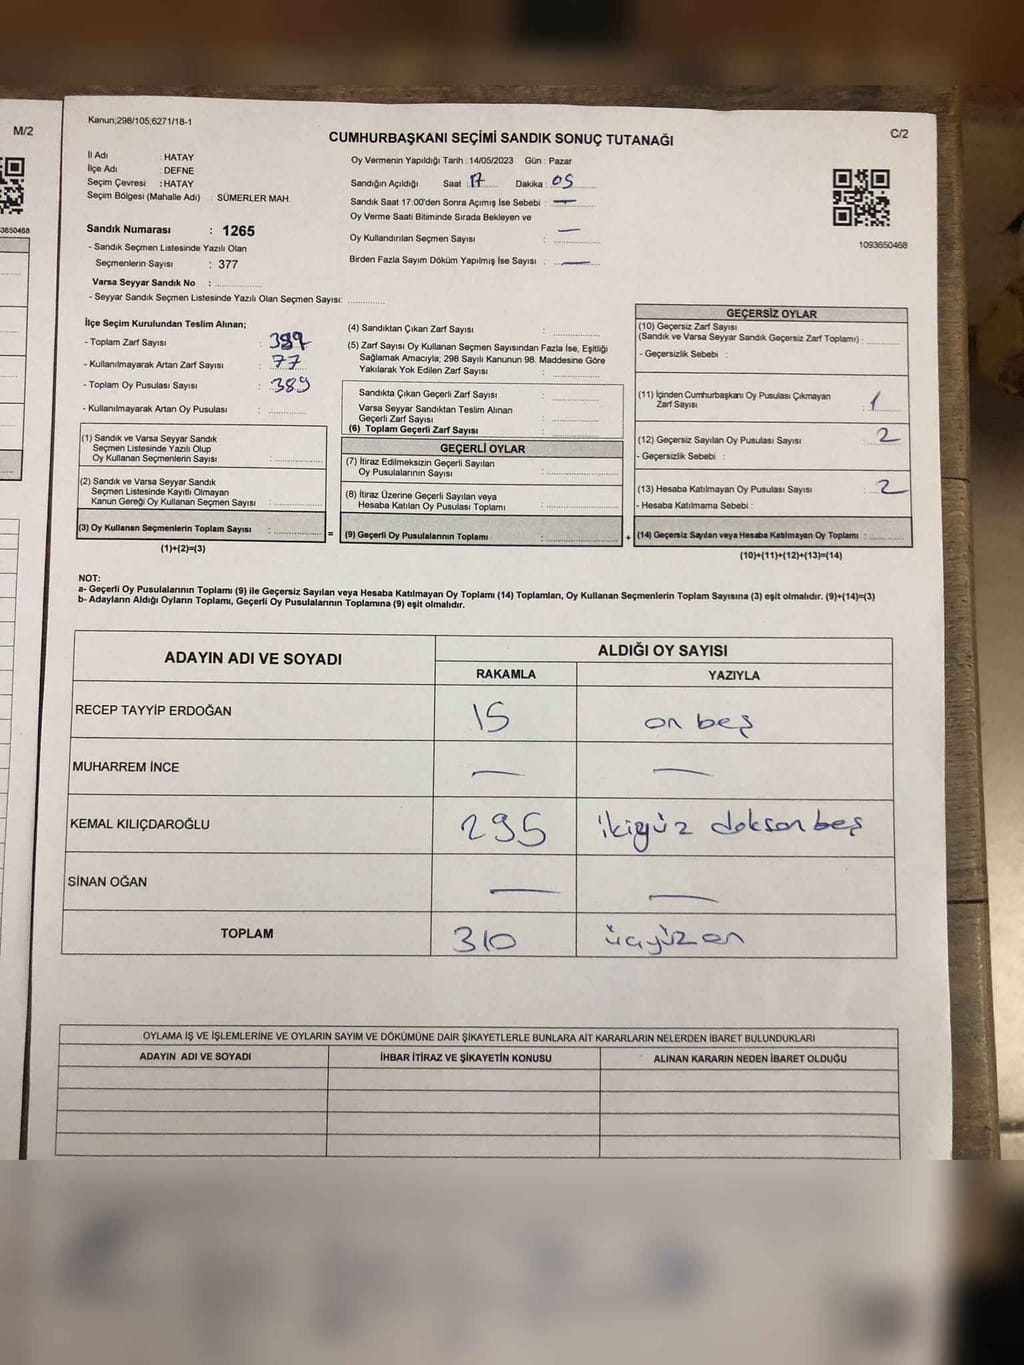 M/2
3650468
Kanun;298/105;6271/18-1
C/2
CUMHURBAŞKANI SEÇİMİ SANDIK SONUÇ TUTANAĞI
İl Adı : HATAY
İlçe Adı : DEFNE
Seçim Çevresi : HATAY
Seçim Bölgesi (Mahalle Adı) : SÜMERLER MAH.
Oy Vermenin Yapıldığı Tarih : 14/05/2023 Gün : Pazar
Sandığın Açıldığı Saat : 17 Dakika : 05
Sandık Saat 17:00'den Sonra Açımış İse Sebebi : —
Oy Verme Saati Bitiminde Sırada Bekleyen ve
Oy Kullandırılan Seçmen Sayısı : —
Birden Fazla Sayım Döküm Yapılmış İse Sayısı : —
1093650468
Sandık Numarası : 1265
- Sandık Seçmen Listesinde Yazılı Olan
Seçmenlerin Sayısı : 377
Varsa Seyyar Sandık No :
- Seyyar Sandık Seçmen Listesinde Yazılı Olan Seçmen Sayısı:
İlçe Seçim Kurulundan Teslim Alınan;
- Toplam Zarf Sayısı :
- Kullanılmayarak Artan Zarf Sayısı : 77
- Toplam Oy Pusulası Sayısı : 389
- Kullanılmayarak Artan Oy Pusulası :
(1) Sandık ve Varsa Seyyar Sandık
Seçmen Listesinde Yazılı Olup
Oy Kullanan Seçmenlerin Sayısı :
(2) Sandık ve Varsa Seyyar Sandık
Seçmen Listesinde Kayıtlı Olmayan
Kanun Gereği Oy Kullanan Seçmen Sayısı :
(3) Oy Kullanan Seçmenlerin Toplam Sayısı :
(1)+(2)=(3)
=
(4) Sandıktan Çıkan Zarf Sayısı :
(5) Zarf Sayısı Oy Kullanan Seçmen Sayısından Fazla İse, Eşitliği
Sağlamak Amacıyla; 298 Sayılı Kanunun 98. Maddesine Göre
Yakılarak Yok Edilen Zarf Sayısı :
Sandıkta Çıkan Geçerli Zarf Sayısı :
Varsa Seyyar Sandıktan Teslim Alınan
Geçerli Zarf Sayısı :
(6) Toplam Geçerli Zarf Sayısı :
GEÇERLİ OYLAR
(7) İtiraz Edilmeksizin Geçerli Sayılan
Oy Pusulalarının Sayısı :
(8) İtiraz Üzerine Geçerli Sayılan veya
Hesaba Katılan Oy Pusulası Toplamı :
(9) Geçerli Oy Pusulalarının Toplamı :
+
GEÇERSİZ OYLAR
(10) Geçersiz Zarf Sayısı
(Sandık ve Varsa Seyyar Sandık Geçersiz Zarf Toplamı) :
- Geçersizlik Sebebi :
(11) İçinden Cumhurbaşkanı Oy Pusulası Çıkmayan
Zarf Sayısı : 1
(12) Geçersiz Sayılan Oy Pusulası Sayısı : 2
- Geçersizlik Sebebi :
(13) Hesaba Katılmayan Oy Pusulası Sayısı : 2
- Hesaba Katılmama Sebebi :
(14) Geçersiz Sayılan veya Hesaba Katılmayan Oy Toplamı :
(10)+(11)+(12)+(13)=(14)
NOT:
a- Geçerli Oy Pusulalarının Toplamı (9) ile Geçersiz Sayılan veya Hesaba Katılmayan Oy Toplamı (14) Toplamları, Oy Kullanan Seçmenlerin Toplam Sayısına (3) eşit olmalıdır. (9)+(14)=(3)
b- Adayların Aldığı Oyların Toplamı, Geçerli Oy Pusulalarının Toplamına (9) eşit olmalıdır.
ADAYIN ADI VE SOYADI ALDIĞI OY SAYISI
RAKAMLA YAZIYLA
RECEP TAYYİP ERDOĞAN 15 on beş
MUHARREM İNCE — —
KEMAL KILIÇDAROĞLU 295 ikiyüz doksan beş
SİNAN OĞAN — —
TOPLAM 310 üçyüz on
OYLAMA İŞ VE İŞLEMLERİNE VE OYLARIN SAYIM VE DÖKÜMÜNE DAİR ŞİKAYETLERLE BUNLARA AİT KARARLARIN NELERDEN İBARET BULUNDUKLARI
ADAYIN ADI VE SOYADI İHBAR İTİRAZ VE ŞİKAYETİN KONUSU ALINAN KARARIN NEDEN İBARET OLDUĞU